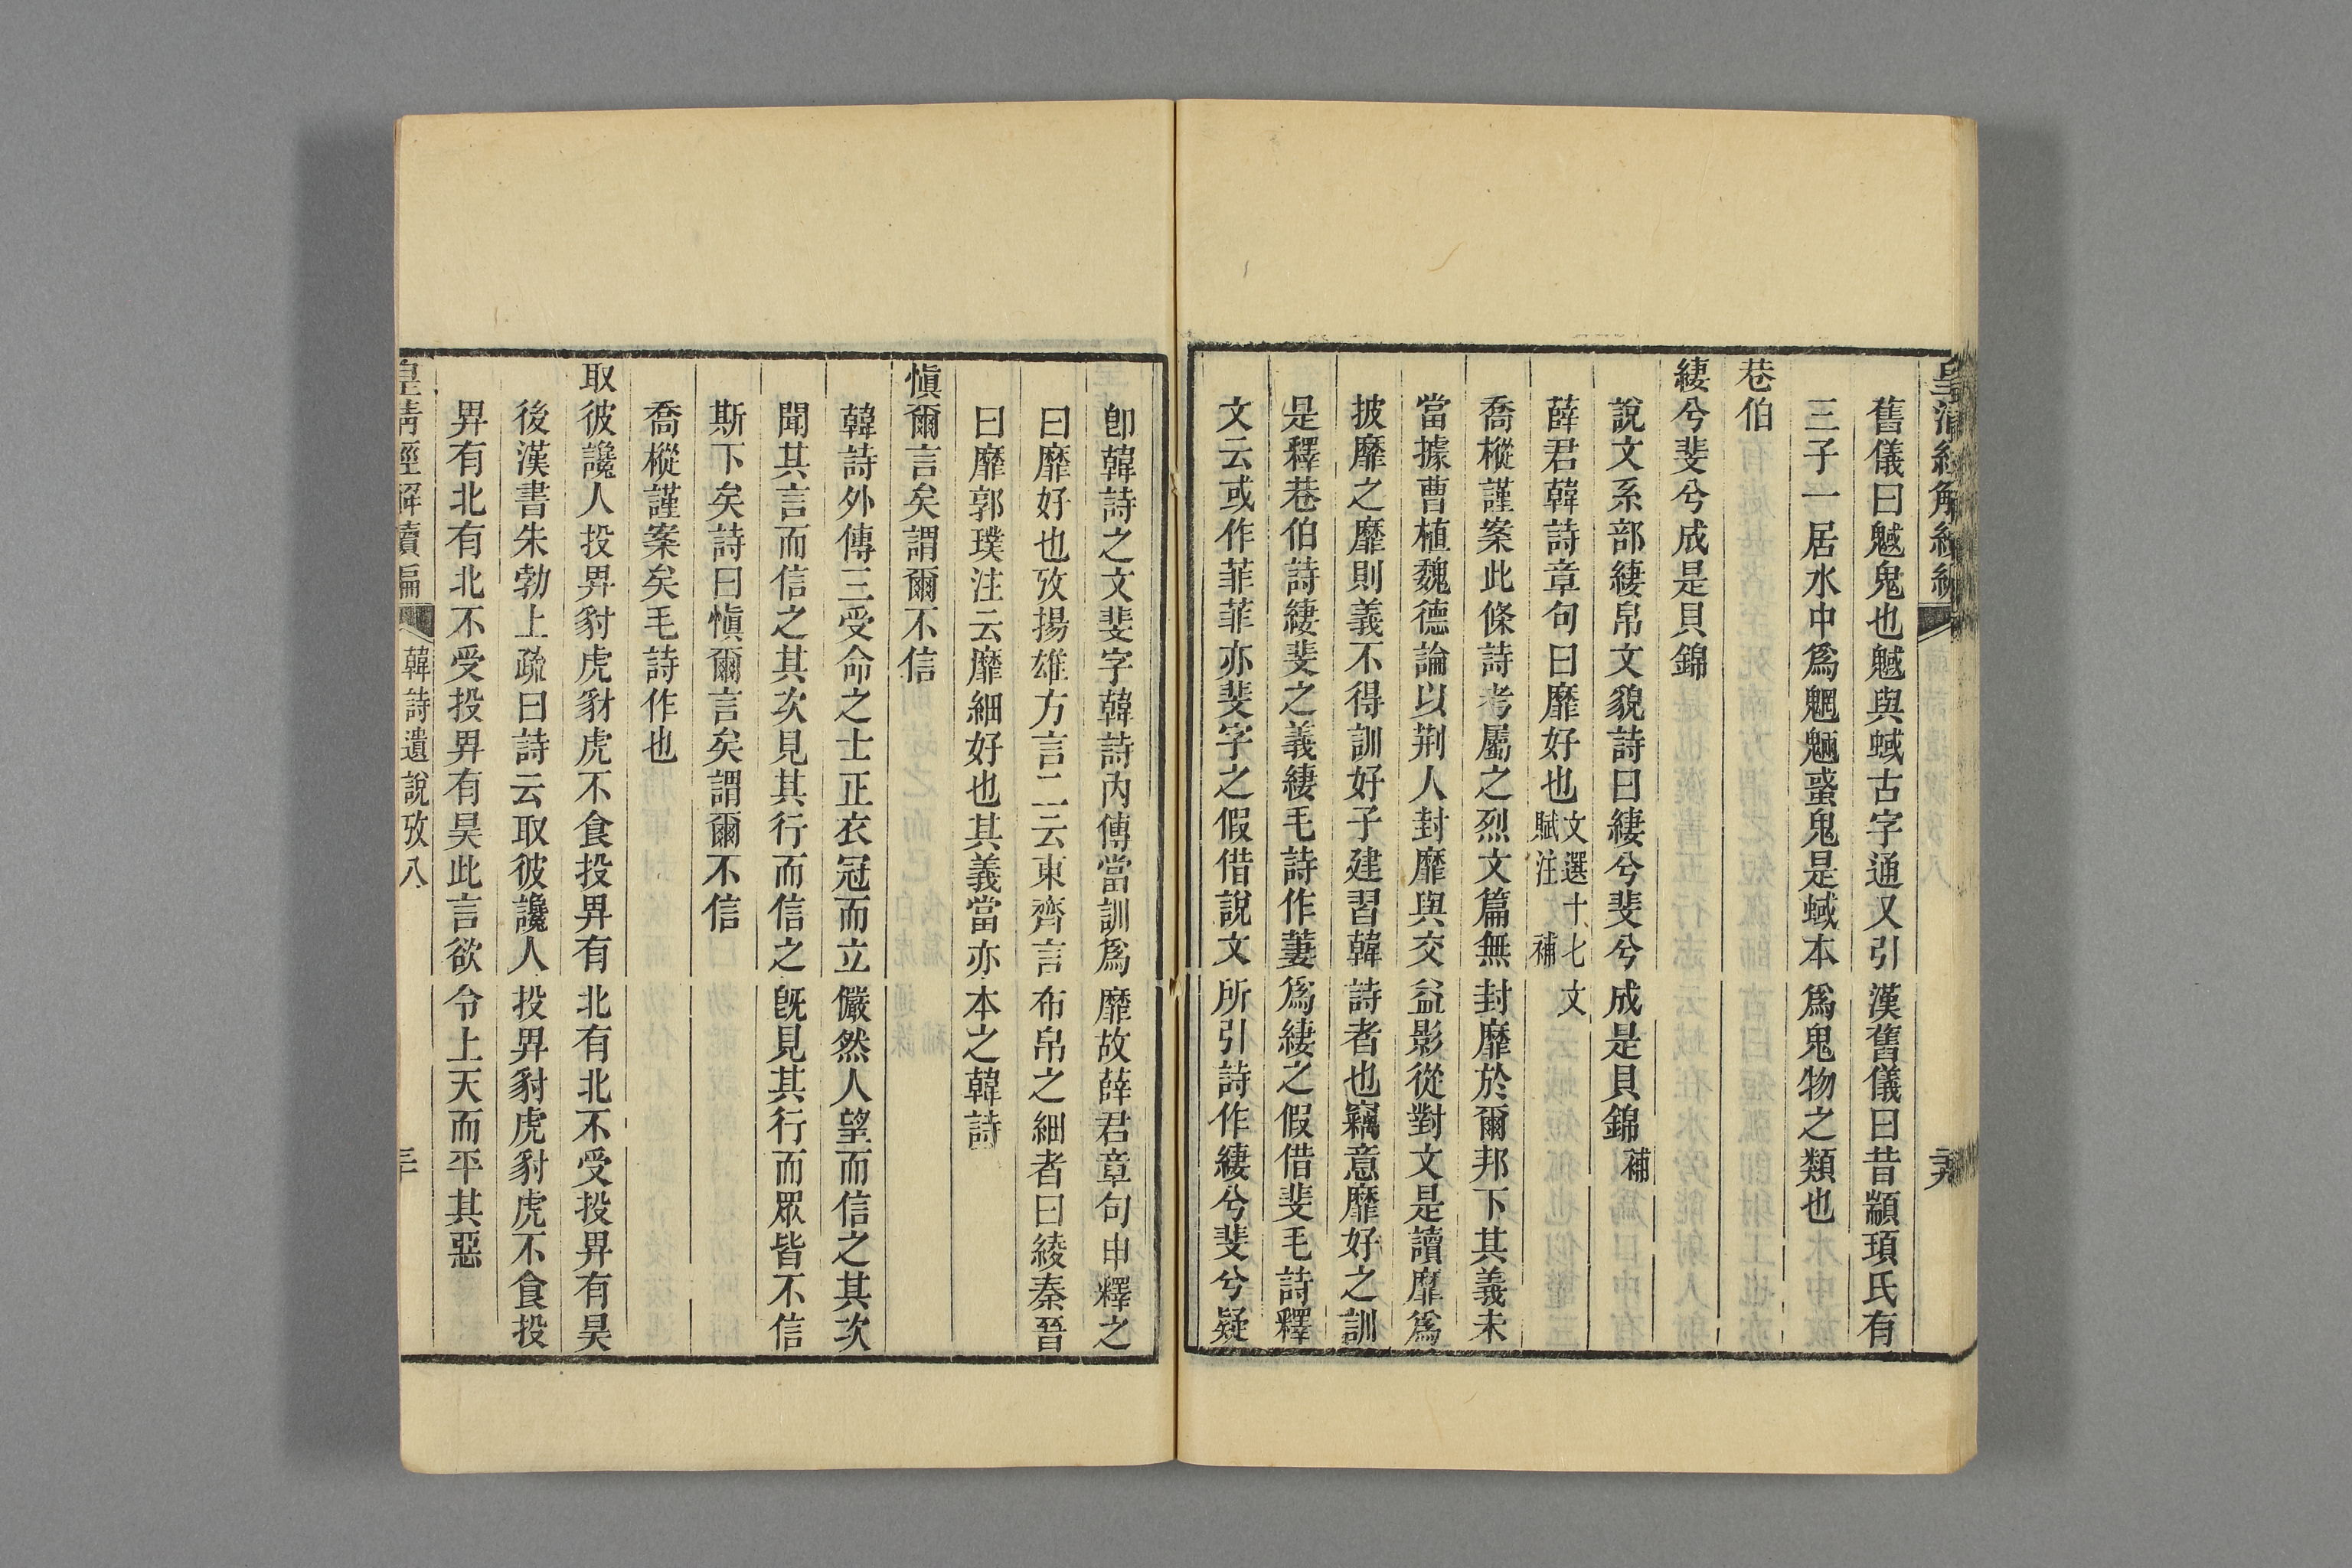 皇清經解續編
舊儀曰魊鬼也魊與蜮古字通又引漢舊儀曰昔顓頊氏有
三子一居水中爲魍魎蜮鬼是蜮本爲鬼物之類也
巷伯
緀兮斐兮成是貝錦
說文系部緀帛文貌詩曰緀兮斐兮成是貝錦補
薛君韓詩章句曰靡好也文選十七文賦注補
喬樅謹案此條詩考屬之烈文篇無封靡於爾邦下其義未
當據曹植魏德論以荆人封靡與交益影從對文是讀靡爲
披靡之靡則義不得訓好子建習韓詩者也竊意靡好之訓
是釋巷伯詩緀斐之義緀毛詩作萋爲緀之假借斐毛詩釋
文云或作菲菲亦斐字之假借說文所引詩作緀兮斐兮疑
卽韓詩之文斐字韓詩內傳當訓爲靡故薛君章句申釋之
曰靡好也攷揚雄方言二云東齊言布帛之細者曰綾秦晉
曰靡郭璞注云靡細好也其義當亦本之韓詩
愼爾言矣謂爾不信
韓詩外傳三受命之士正衣冠而立儼然人望而信之其次
聞其言而信之其次見其行而信之旣見其行而眾皆不信
斯下矣詩曰愼爾言矣謂爾不信
喬樅謹案矣毛詩作也
取彼讒人投畀豺虎豺虎不食投畀有北有北不受投畀有昊
後漢書朱勃上疏曰詩云取彼讒人投畀豺虎豺虎不食投
畀有北有北不受投畀有昊此言欲令上天而平其惡
皇清經解續編 韓詩遺說攷八 三十